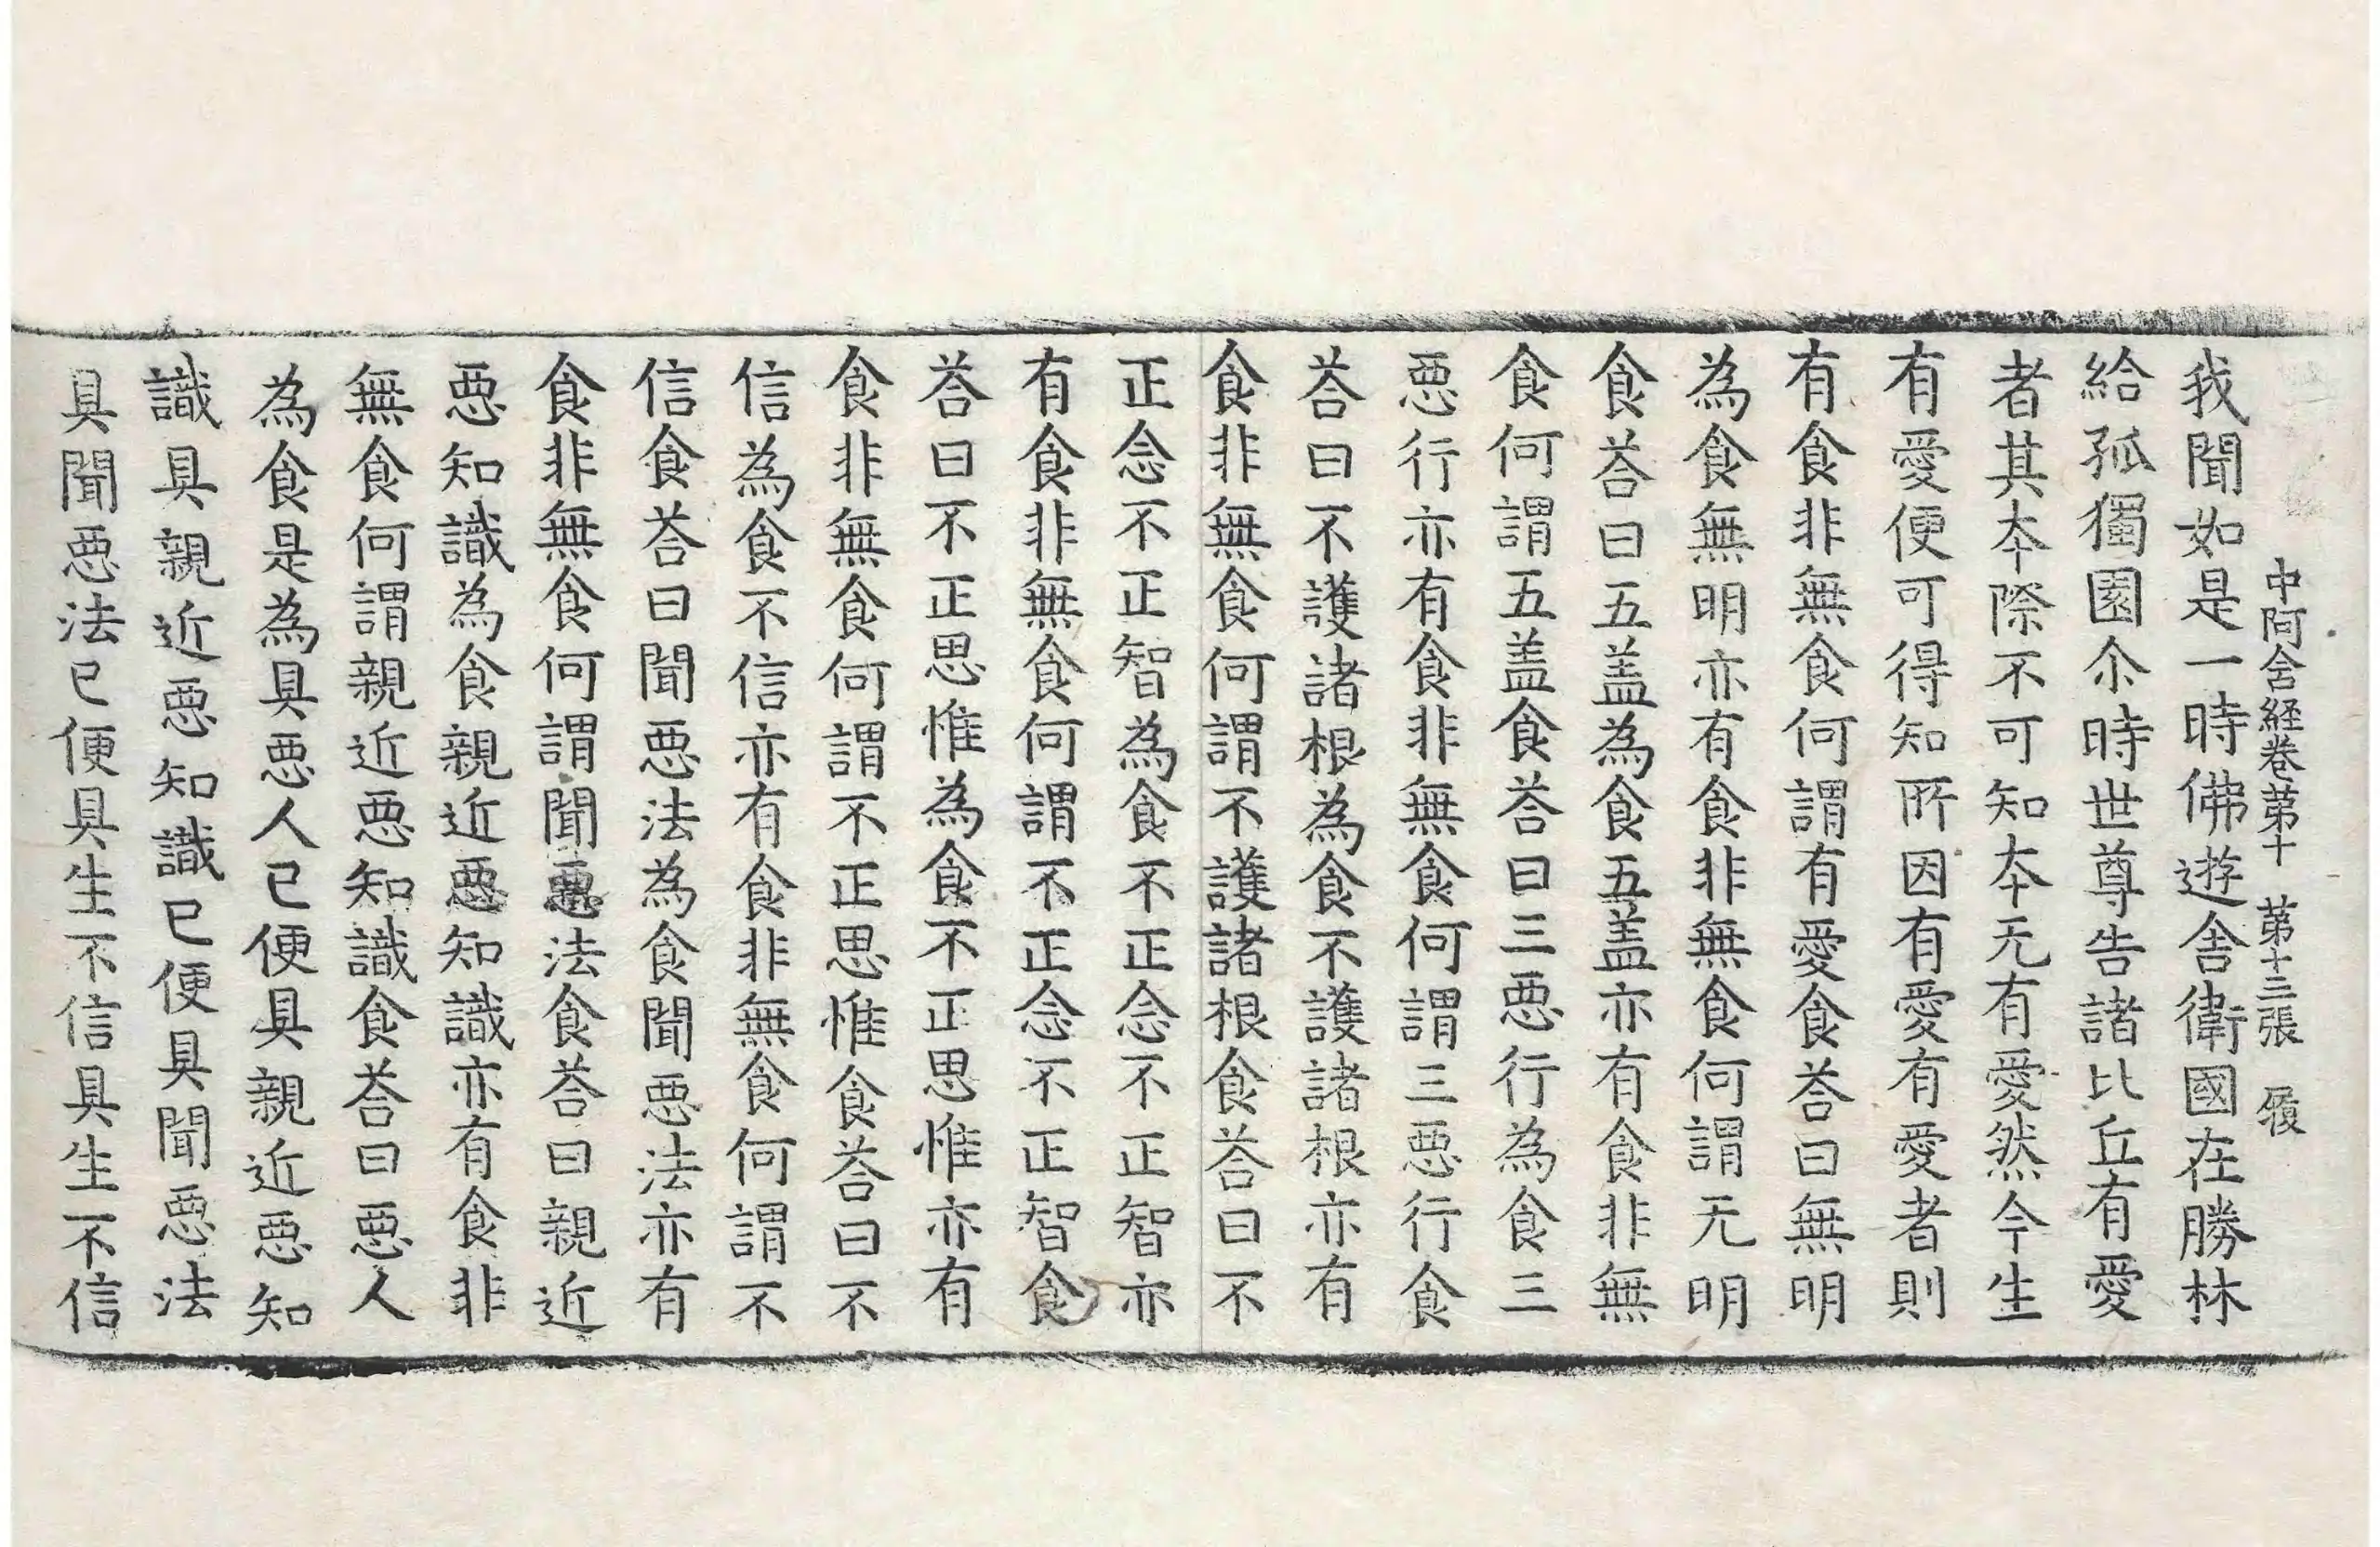 中阿含経卷苐十　苐十三張　履
我聞如是一時佛遊舎衛國在勝林
給孤獨園尒時世尊告諸比丘有愛
者其夲際不可知夲无有愛然今生
有愛便可得知所因有愛有愛者則
有食非無食何謂有愛食荅曰無明
為食無明亦有食非無食何謂无明
食荅曰五盖為食五盖亦有食非無
食何謂五盖食荅曰三惡行為食三
惡行亦有食非無食何謂三惡行食
荅曰不護諸根為食不護諸根亦有
食非無食何謂不護諸根食荅曰不
正念不正智為食不正念不正智亦
有食非無食何謂不正念不正智食
荅曰不正思惟為食不正思惟亦有
食非無食何謂不正思惟食荅曰不
信為食不信亦有食非無食何謂不
信食荅曰聞惡法為食聞惡法亦有
食非無食何謂聞惡法食荅曰親近
惡知識為食親近惡知識亦有食非
無食何謂親近惡知識食荅曰惡人
為食是為具惡人已便具親近惡知
識具親近惡知識已便具聞惡法
具聞惡法已便具生不信具生不信